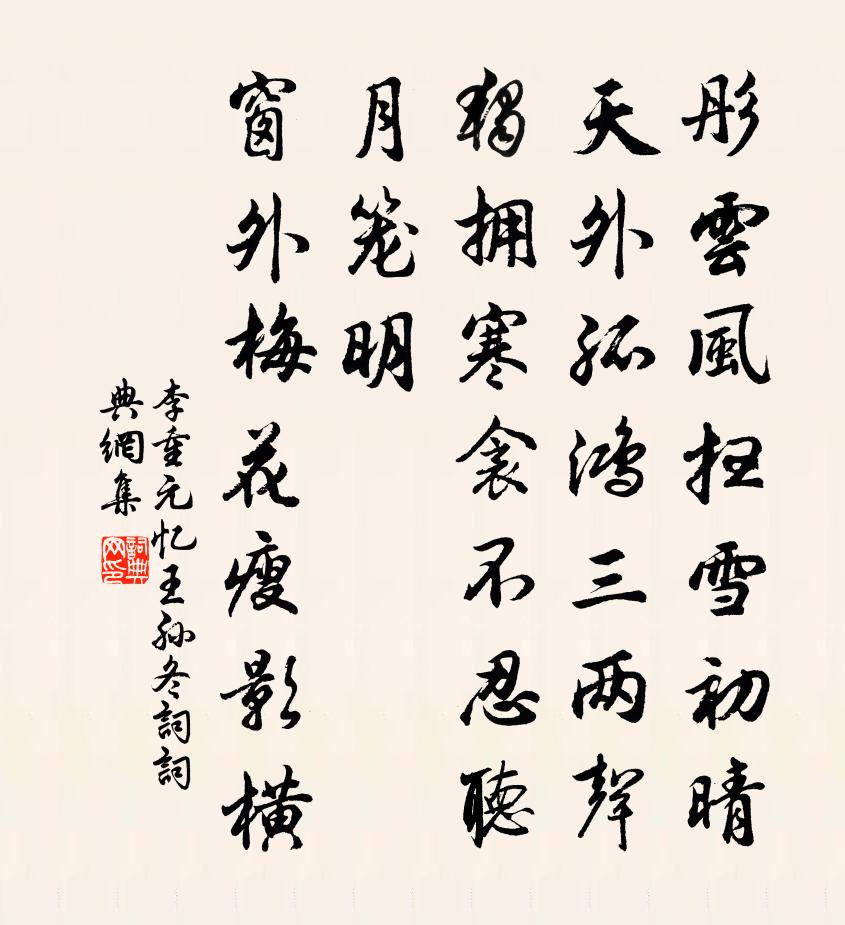 彤雲風扫雪初晴
天外孤鸿三两聲
獨拥寒衾不忍聽
月笼明
窗外梅花瘦影横
李重元忆王孙冬詞詞
典網集
詞典
网印